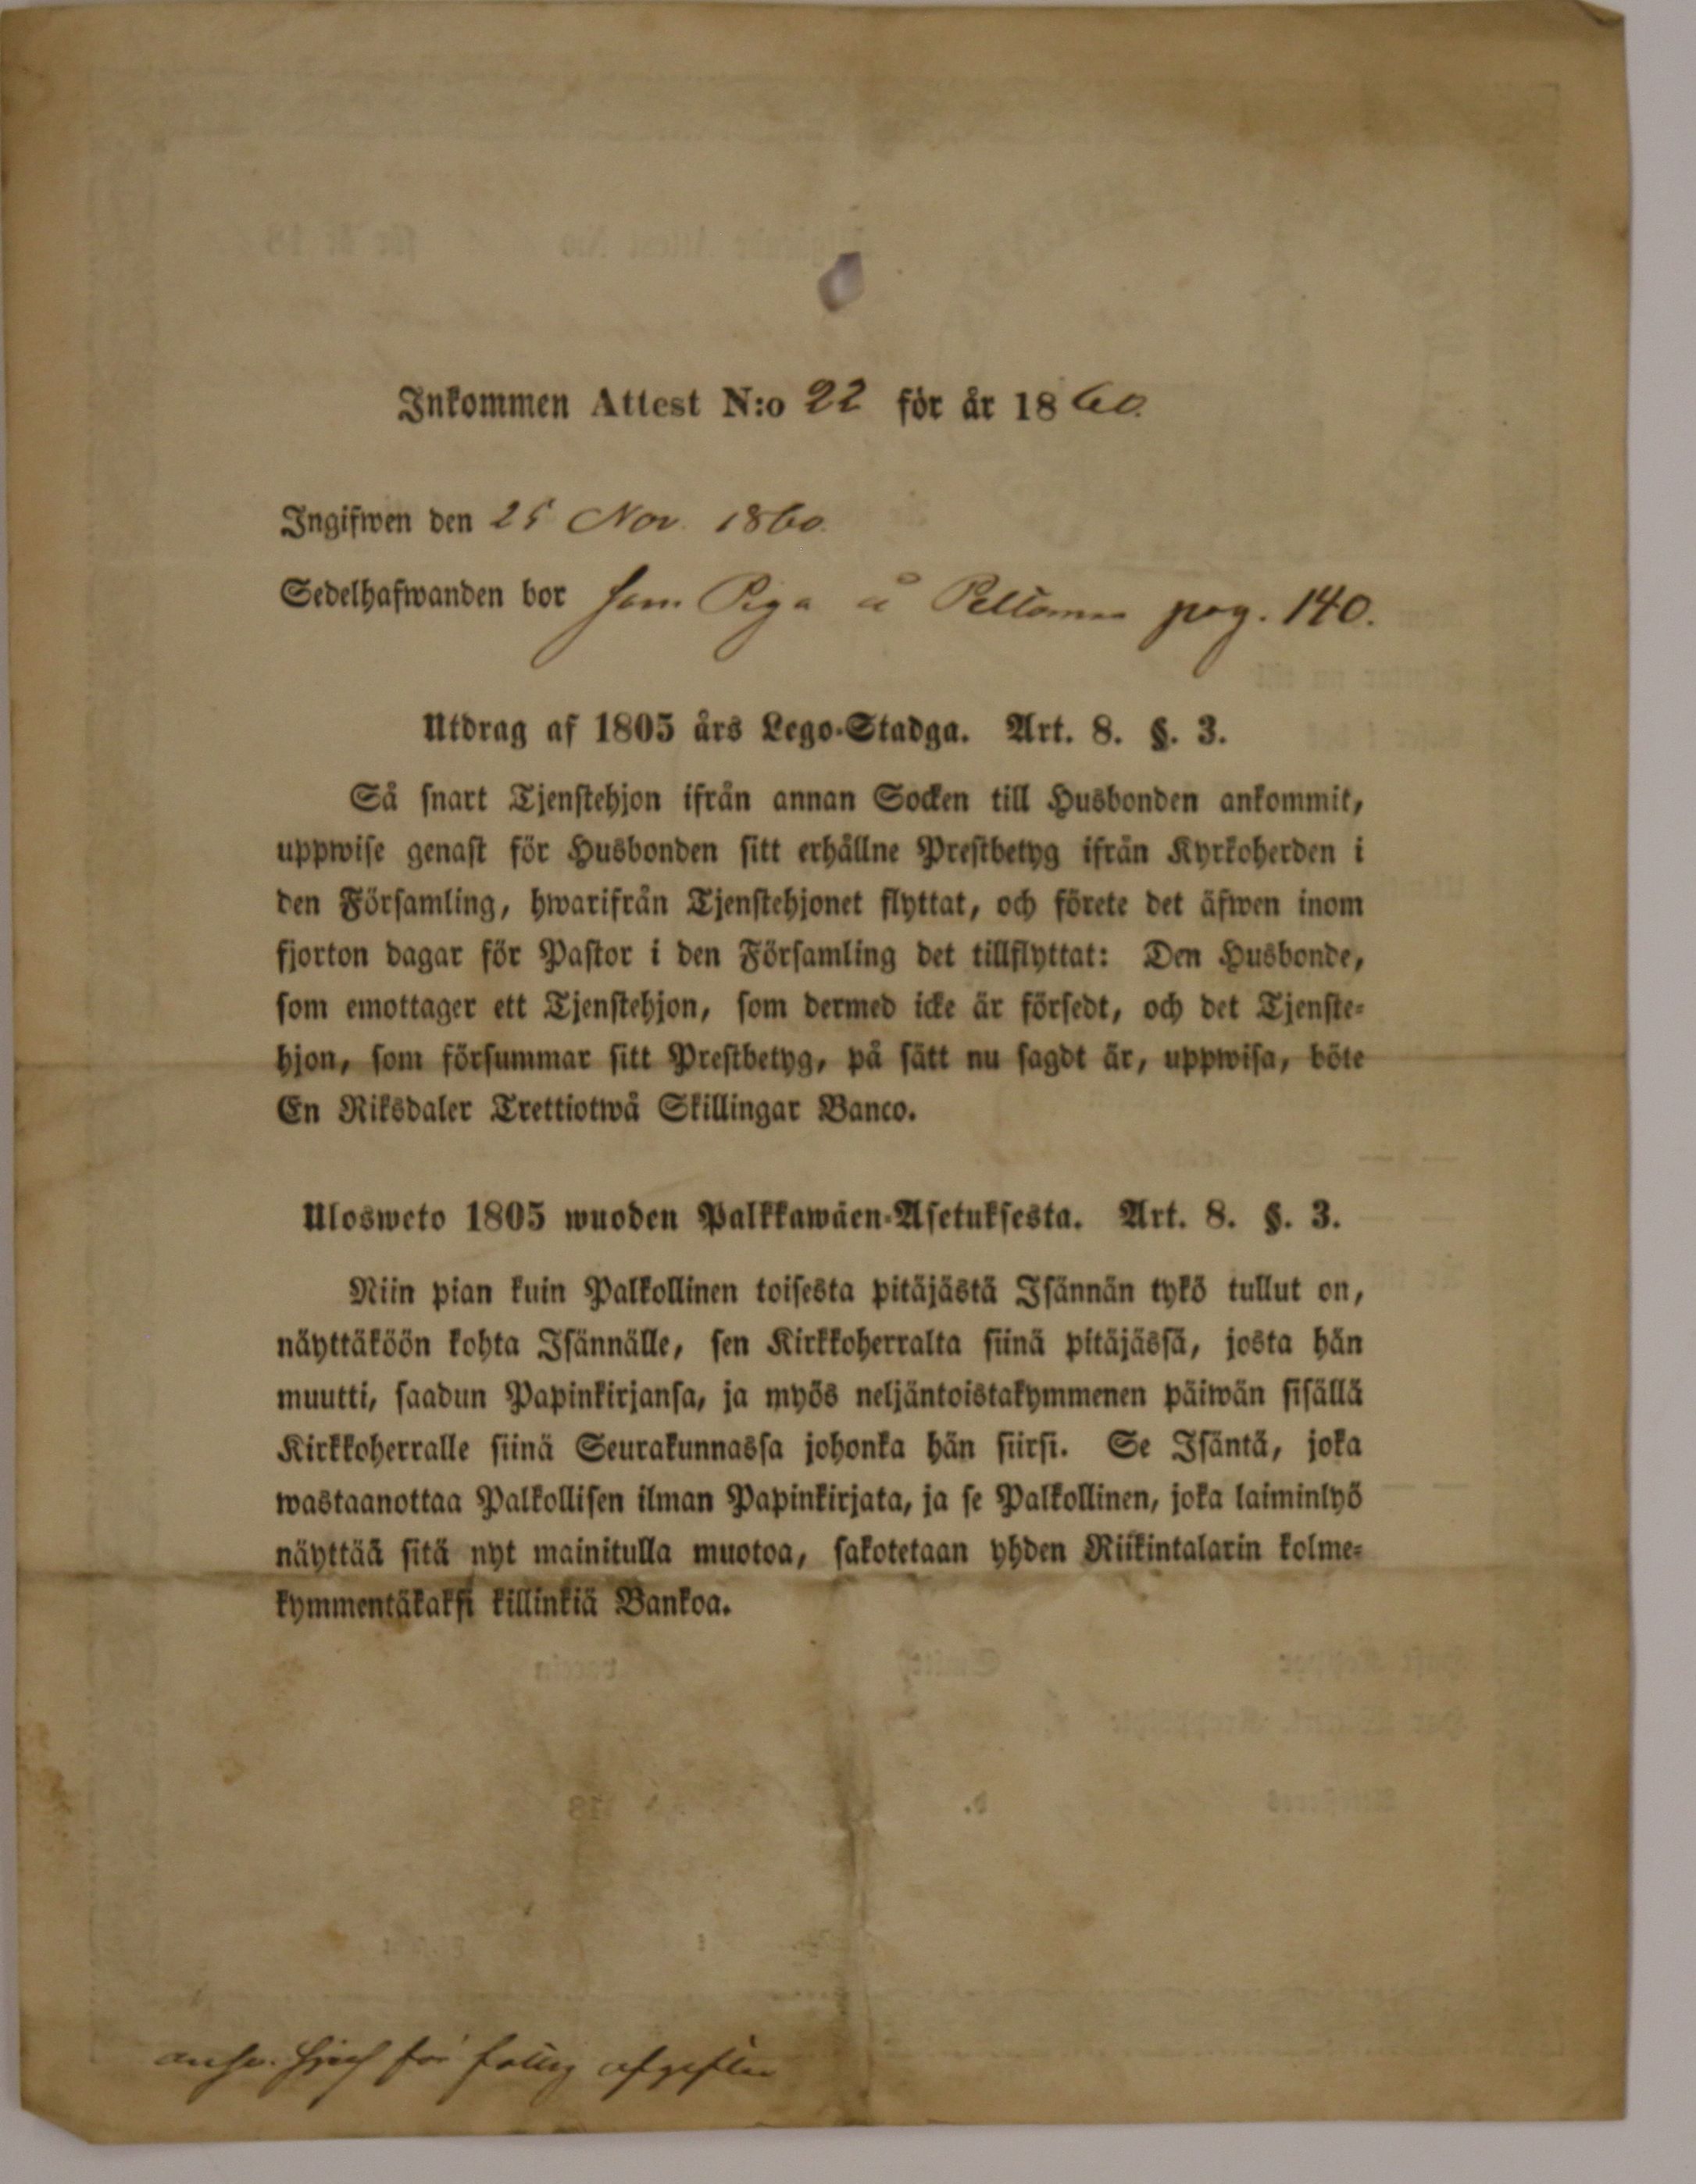 Inkommen Attest N:o 22 för år 1860.
Ingifwen den 25 Nov. 1860.
Sedelhafwanden bor som Piga å pag. 140.
Utdrag af 1805 års Lego-Stadga. Art. 8. §. 3.
Så snart Tjenstehjon ifrån annan Socken till Husbonden ankommit,
uppwise genast för Husbonden sitt erhållne Prestbetyg ifrån Kyrkoherden i
den Församling, hwarifrån Tjenstehjonet flyttat, och förete det äfwen inom
fjorton dagar för Pastor i den Församling det tillflyttat: Den Husbonde,
som emottager ett Tjenstehjon, som dermed icke är försedt, och det Tjenste-
hjon, som försummar sitt Prestbetyg, på sätt nu sagdt är, uppwisa, böte
En Riksdaler Trettiotwå Skillingar Banco.
Ulosweto 1805 wuoden Palkkawäen-Asetuksesta. Art. 8. §. 3.
Niin pian kuin Palkollinen toisesta pitäjästä Isännän tykö tullut on,
näyttäköön kohta Isännälle, sen Kirkkoherralta siinä pitäjässä, josta hän
muutti, saadun Papinkirjansa, ja myös neljäntoistakymmenen päiwän sisällä
Kirkkoherralle siinä Seurakunnassa johonka hän siirsi. Se Isäntä, joka
wastaanottaa Palkollisen ilman Papinkirjata, ja se Palkollinen, joka laiminlyö
näyttää sitä nyt mainitulla muotoa, sakotetaan yhden Riikintalarin kolme-
kymmentäkaksi killinkiä Bankoa.